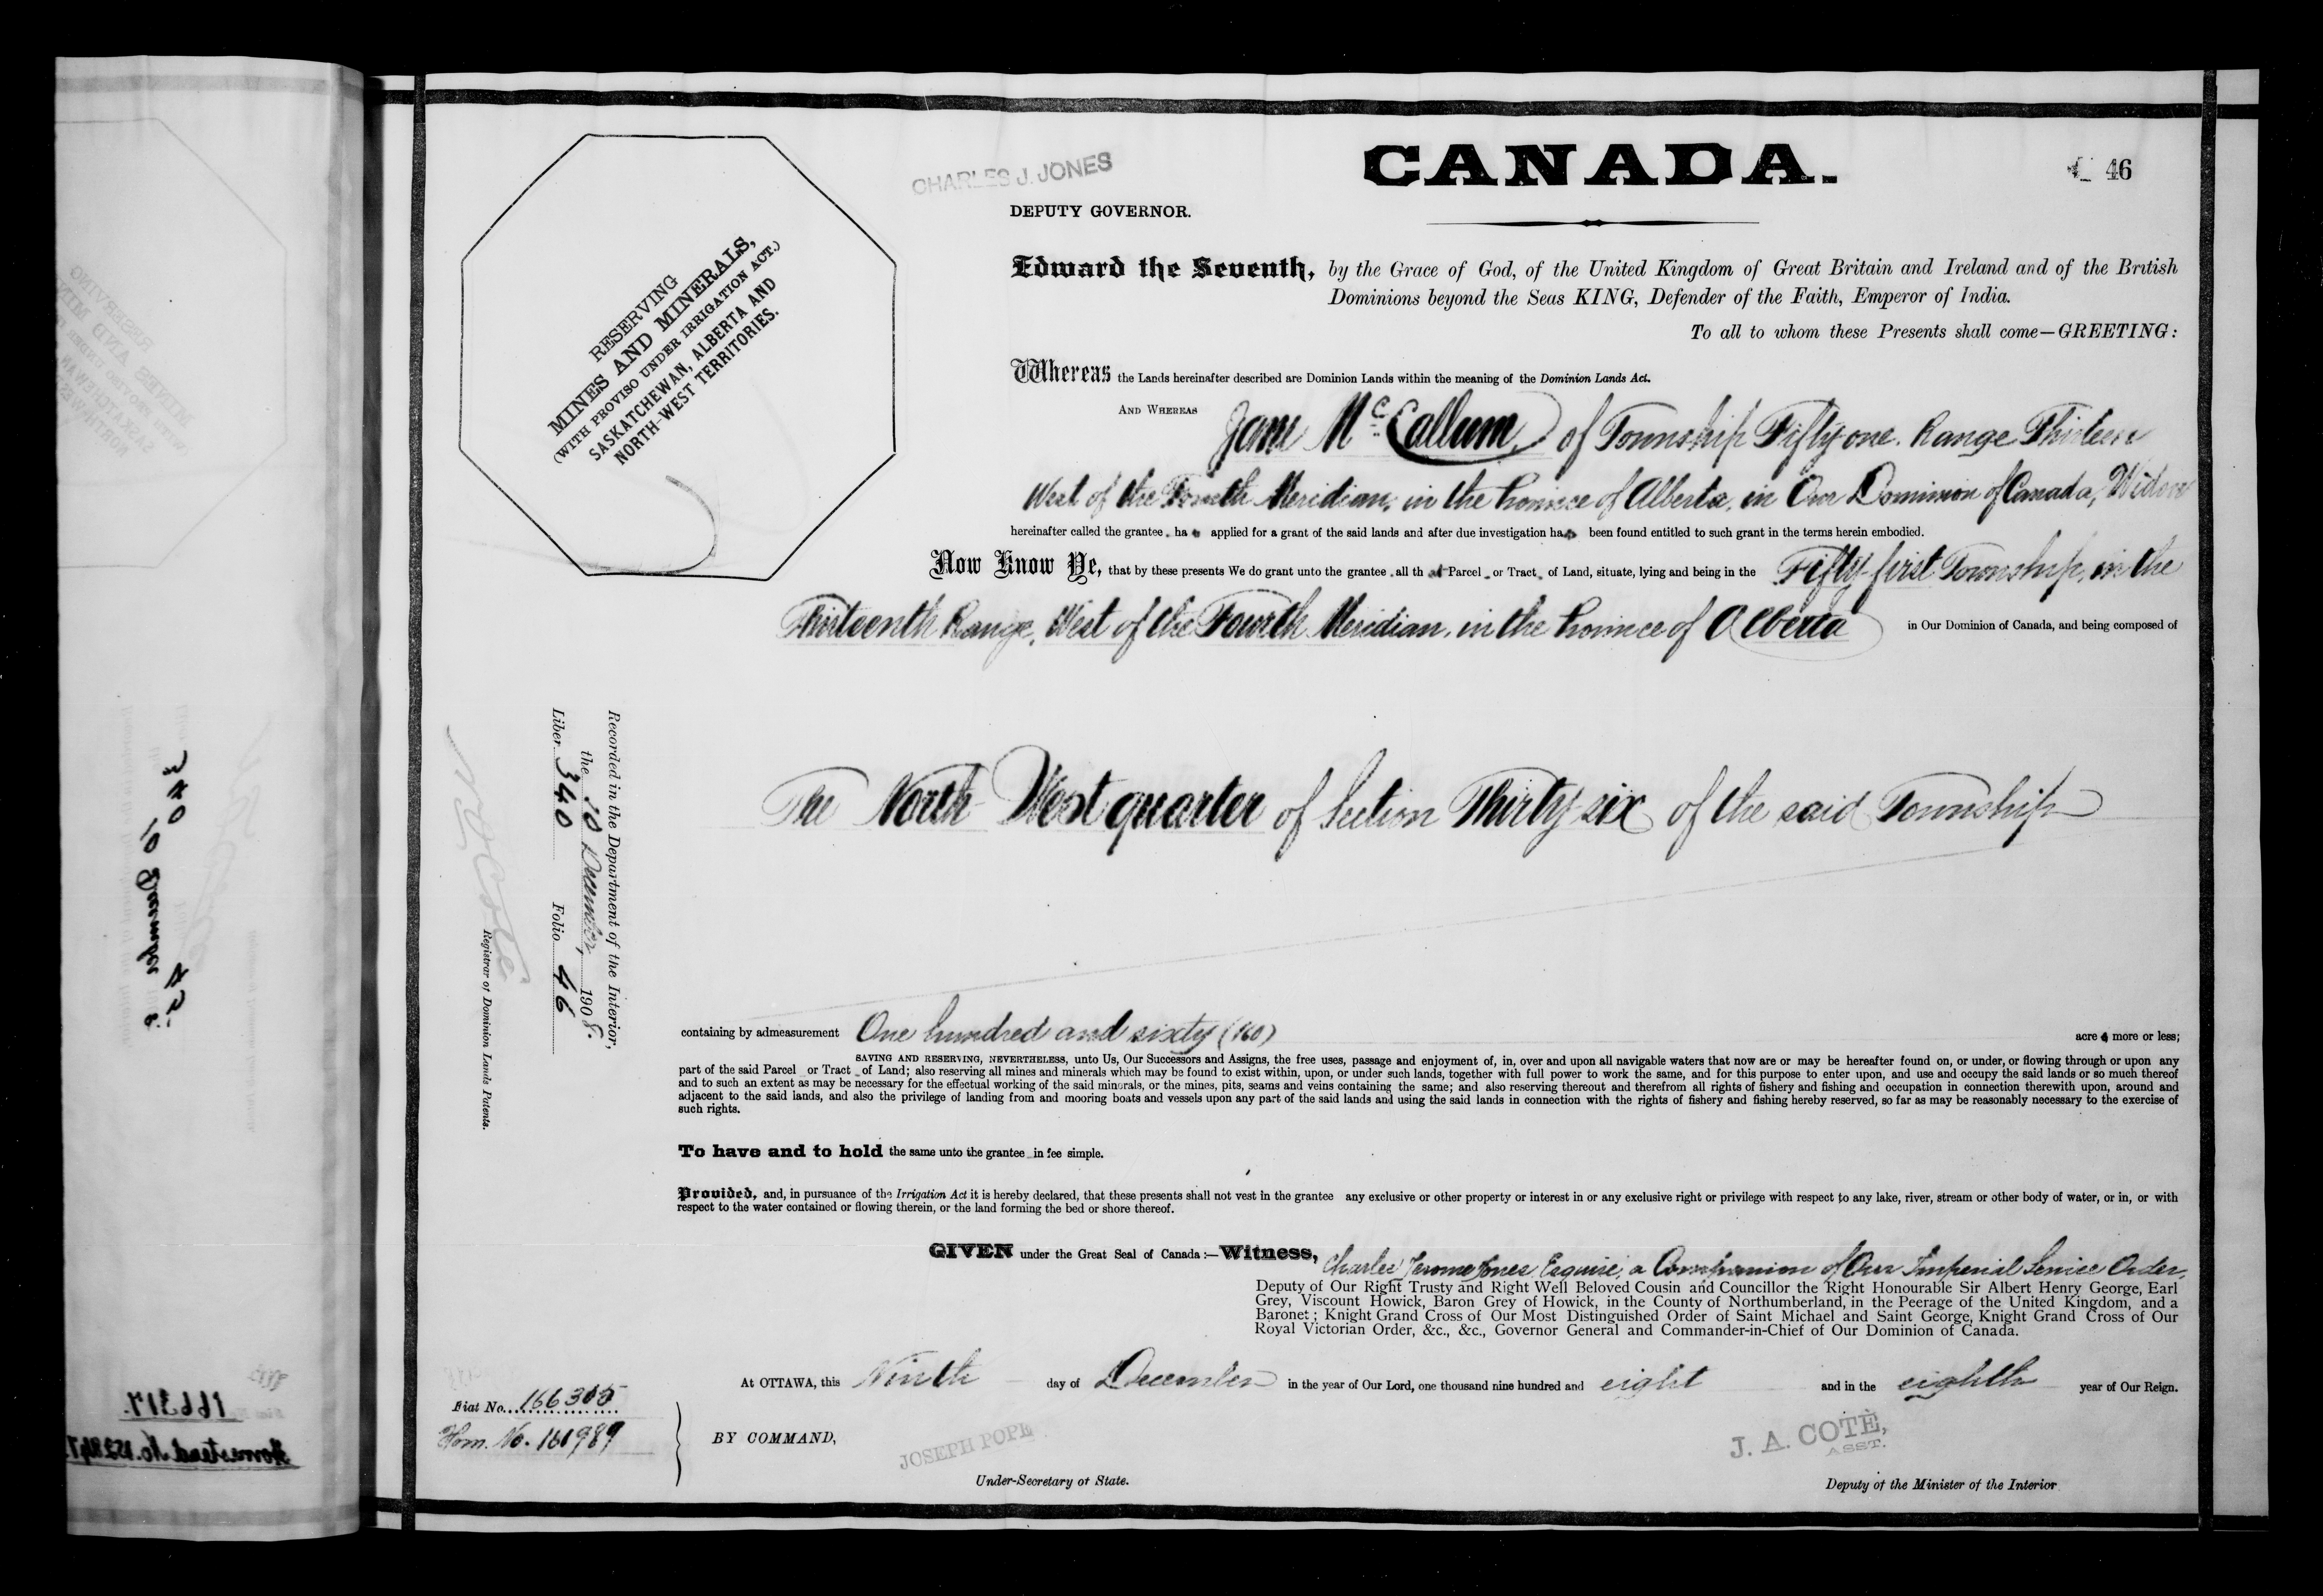 CANADA.
46
CHARLES J. JONES
DEPUTY GOVERNOR.
RESERVING
MINES AND MINERALS,
(WITH PROVISO UNDER IRRIGATION ACT.)
SASKATCHEWAN, ALBERTA AND
NORTH-WEST TERRITORIES.
Edward the Seventh, by the Grace of God, of the United Kingdom of Great Britain and Ireland and of the British
Dominions beyond the Seas KING, Defender of the Faith, Emperor of India.
To all to whom these Presents shall come—GREETING:
Whereas the Lands hereinafter described are Dominion Lands within the meaning of the Dominion Lands Act.
AND WHEREAS Jane McCallum, of Township Fifty-one. Range Thirteen
West of the Fourth Meridian, in the Province of Alberta, in Our Dominion of Canada, Widow
hereinafter called the grantee, has applied for a grant of the said lands and after due investigation has been found entitled to such grant in the terms herein embodied.
Now Know Ye, that by these presents We do grant unto the grantee, all that Parcel or Tract of Land, situate, lying and being in the Fifty-first Township, in the
Thirteenth Range, West of the Fourth Meridian, in the Province of Alberta in Our Dominion of Canada, and being composed of
The North West quarter of Section Thirty-six of the said Township
containing by admeasurement One hundred and sixty (160) acres more or less;
SAVING AND RESERVING, NEVERTHELESS, unto Us, Our Successors and Assigns, the free uses, passage and enjoyment of, in, over and upon all navigable waters that now are or may be hereafter found on, or under, or flowing through or upon any
part of the said Parcel or Tract of Land; also reserving all mines and minerals which may be found to exist within, upon, or under such lands, together with full power to work the same, and for this purpose to enter upon, and use and occupy the said lands or so much thereof
and to such an extent as may be necessary for the effectual working of the said minerals, or the mines, pits, seams and veins containing the same; and also reserving thereout and therefrom all rights of fishery and fishing and occupation in connection therewith upon, around and
adjacent to the said lands, and also the privilege of landing from and mooring boats and vessels upon any part of the said lands and using the said lands in connection with the rights of fishery and fishing hereby reserved, so far as may be reasonably necessary to the exercise of
such rights.
To have and to hold the same unto the grantee in fee simple.
Provided, and, in pursuance of the Irrigation Act it is hereby declared, that these presents shall not vest in the grantee any exclusive or other property or interest in or any exclusive right or privilege with respect to any lake, river, stream or other body of water, or in, or with
respect to the water contained or flowing therein, or the land forming the bed or shore thereof.
GIVEN under the Great Seal of Canada:—Witness, Charles Jerome Jones, Esquire, a Companion of Our Imperial Service Order,
Deputy of Our Right Trusty and Right Well Beloved Cousin and Councillor the Right Honourable Sir Albert Henry George, Earl
Grey, Viscount Howick, Baron Grey of Howick, in the County of Northumberland, in the Peerage of the United Kingdom, and a
Baronet; Knight Grand Cross of Our Most Distinguished Order of Saint Michael and Saint George, Knight Grand Cross of Our
Royal Victorian Order, &c., &c., Governor General and Commander-in-Chief of Our Dominion of Canada.
At OTTAWA, this Ninth day of December in the year of Our Lord, one thousand nine hundred and eight and in the eighth year of Our Reign.
BY COMMAND,
JOSEPH POPE
Under-Secretary of State.
J. A. COTÉ,
ASST.
Deputy of the Minister of the Interior
Fiat No. 166305
Hom. No. 161989
Recorded in the Department of the Interior,
the 10 December, 1908.
Liber 340 Folio 46
NOCoté
Registrar of Dominion Lands Patents.
340 45
10 December 8.
166317.
Homestead No.